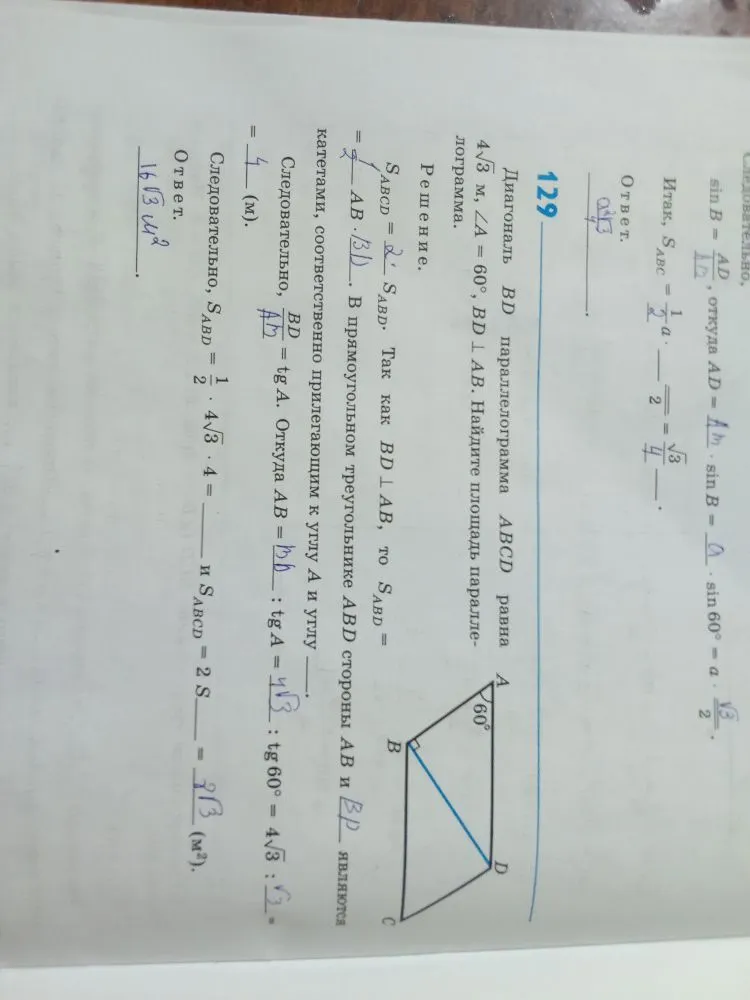 следовательно,
sin B = AD/AB, откуда AD = AB · sin B = a · sin 60° = a · √3/2.
Итак, S_ABC = 1/2 a · ___/2 = √3/4 ___.
Ответ. a²√3/4.
129
Диагональ BD параллелограмма ABCD равна
4√3 м, ∠A = 60°, BD ⊥ AB. Найдите площадь паралле-
лограмма.
A
60°
B
D
C
Решение.
S_ABCD = 2· S_ABD. Так как BD ⊥ AB, то S_ABD =
= 1/2 AB · BD. В прямоугольном треугольнике ABD стороны AB и BD являются
катетами, соответственно прилегающим к углу A и углу ___.
Следовательно, BD/AB = tg A. Откуда AB = BD : tg A = 4√3 : tg 60° = 4√3 : √3 =
= 4 (м).
Следовательно, S_ABD = 1/2 · 4√3 · 4 = ___ и S_ABCD = 2 S___ = 8√3 (м²).
Ответ.
16√3 м².